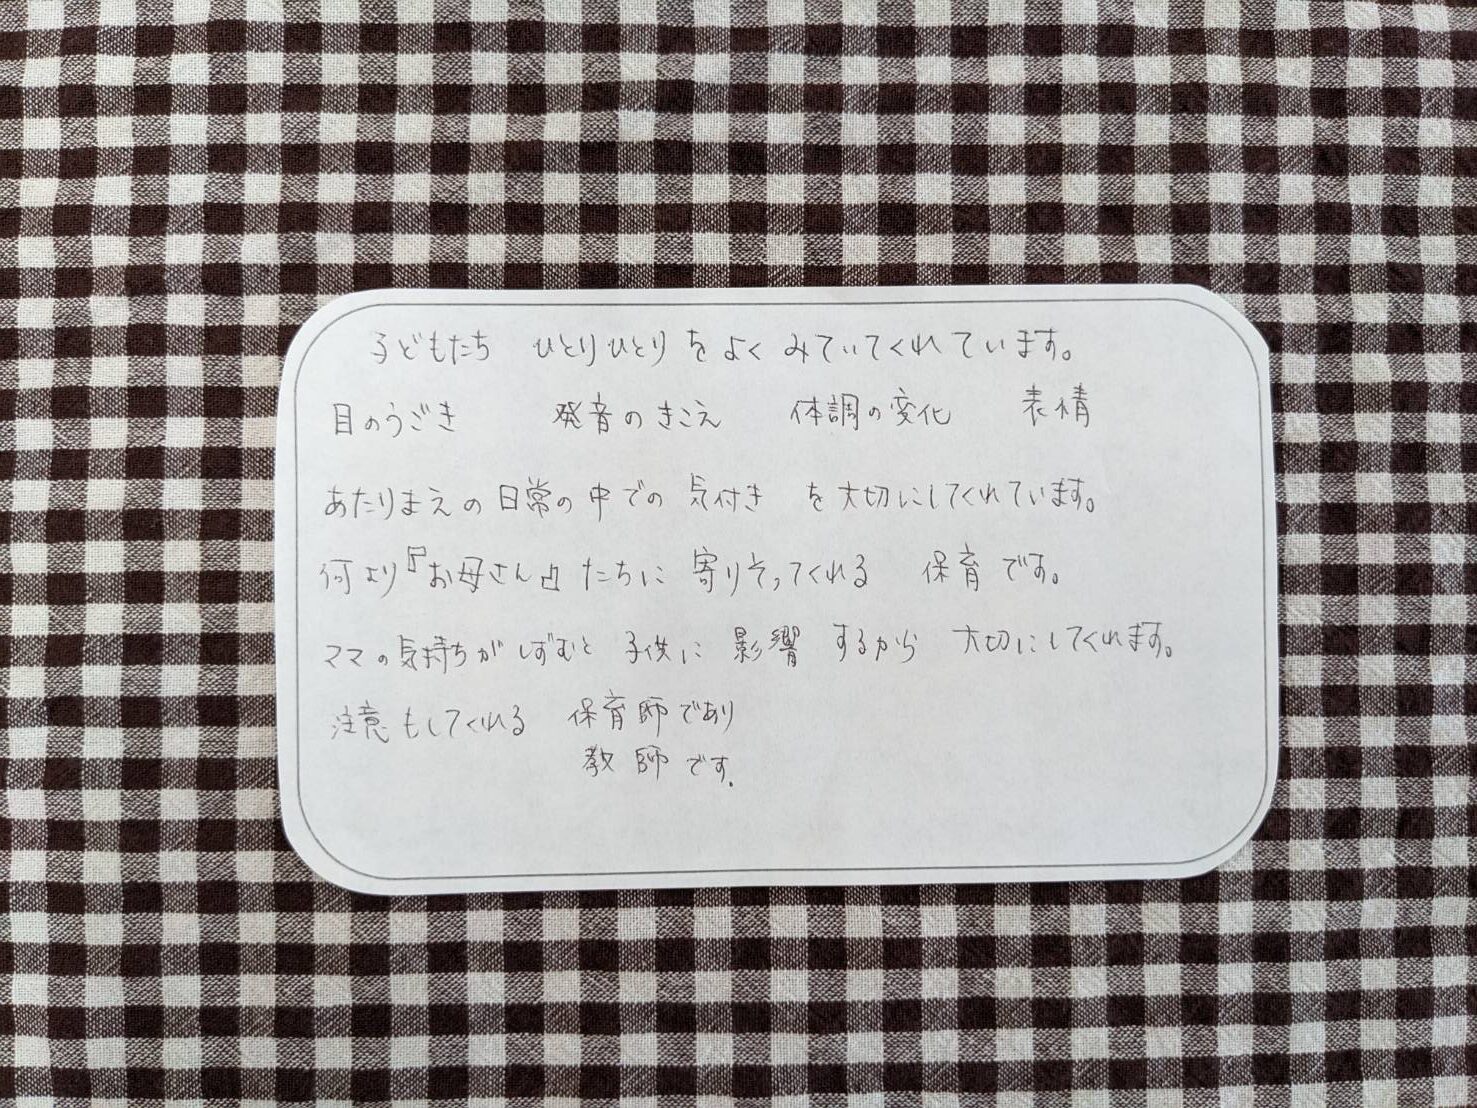 子どもたち ひとりひとりをよくみていてくれています。
目のうごき 発音のきこえ 体調の変化 表情
あたりまえの日常の中での気付き を大切にしてくれています。
何より『お母さん』たちに寄りそってくれる 保育です。
ママの気持ちがしずむと子供に影響するから大切にしてくれます。
注意もしてくれる 保育師であり
教師です.